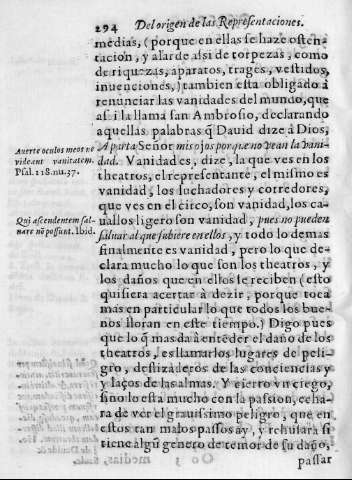 294 Del origen de las Representaciones.
medias, (porque en ellas se haze osten-
tacion, y alarde assi de torpezas, como
de riquezas, aparatos, trages, vestidos,
inuenciones,) tambien esta obligado à
renunciar las vanidades del mundo, que
assi la llama san Ambrosio, declarando
aquellas palabras q̃ Dauid dize à Dios,
Aparta Señor mis ojos porque no vean la vani-
dad. Vanidad es, dize, la que ves en los
theatros, el representante, el mismo es
vanidad, los luchadores y corredores,
que ves en el circo, son vanidad, los ca-
uallos ligero son vanidad, pues no pueden
saluar al que subiere en ellos, y todo lo demas
finalmente es vanidad, pero lo que de-
clara mucho lo que son los theatros, y
los daños que en ellos se reciben (esto
quisiera acertar à dezir, porque toca
mas en particular lo que todos los bue-
nos lloran en este tiempo.) Digo pues
que lo q̃ mas da à entẽder el daño de los
theatros, es llamarlos lugares de peli-
gro, deslizaderos de las conciencias y
y laços de las almas. Y cierto vn ciego,
sino lo està mucho con la passion, echa-
ra de ver el grauissimo peligro, que en
estos tan malos passos ay, y rehusara si
tiene algũ genero de temor de su daño,
passar
Auerte oculos meos ne
videant vanitatem.
Psal. 118. nu. 37.
Qui ascendentem sal-
uare nõ possunt. Ibid.